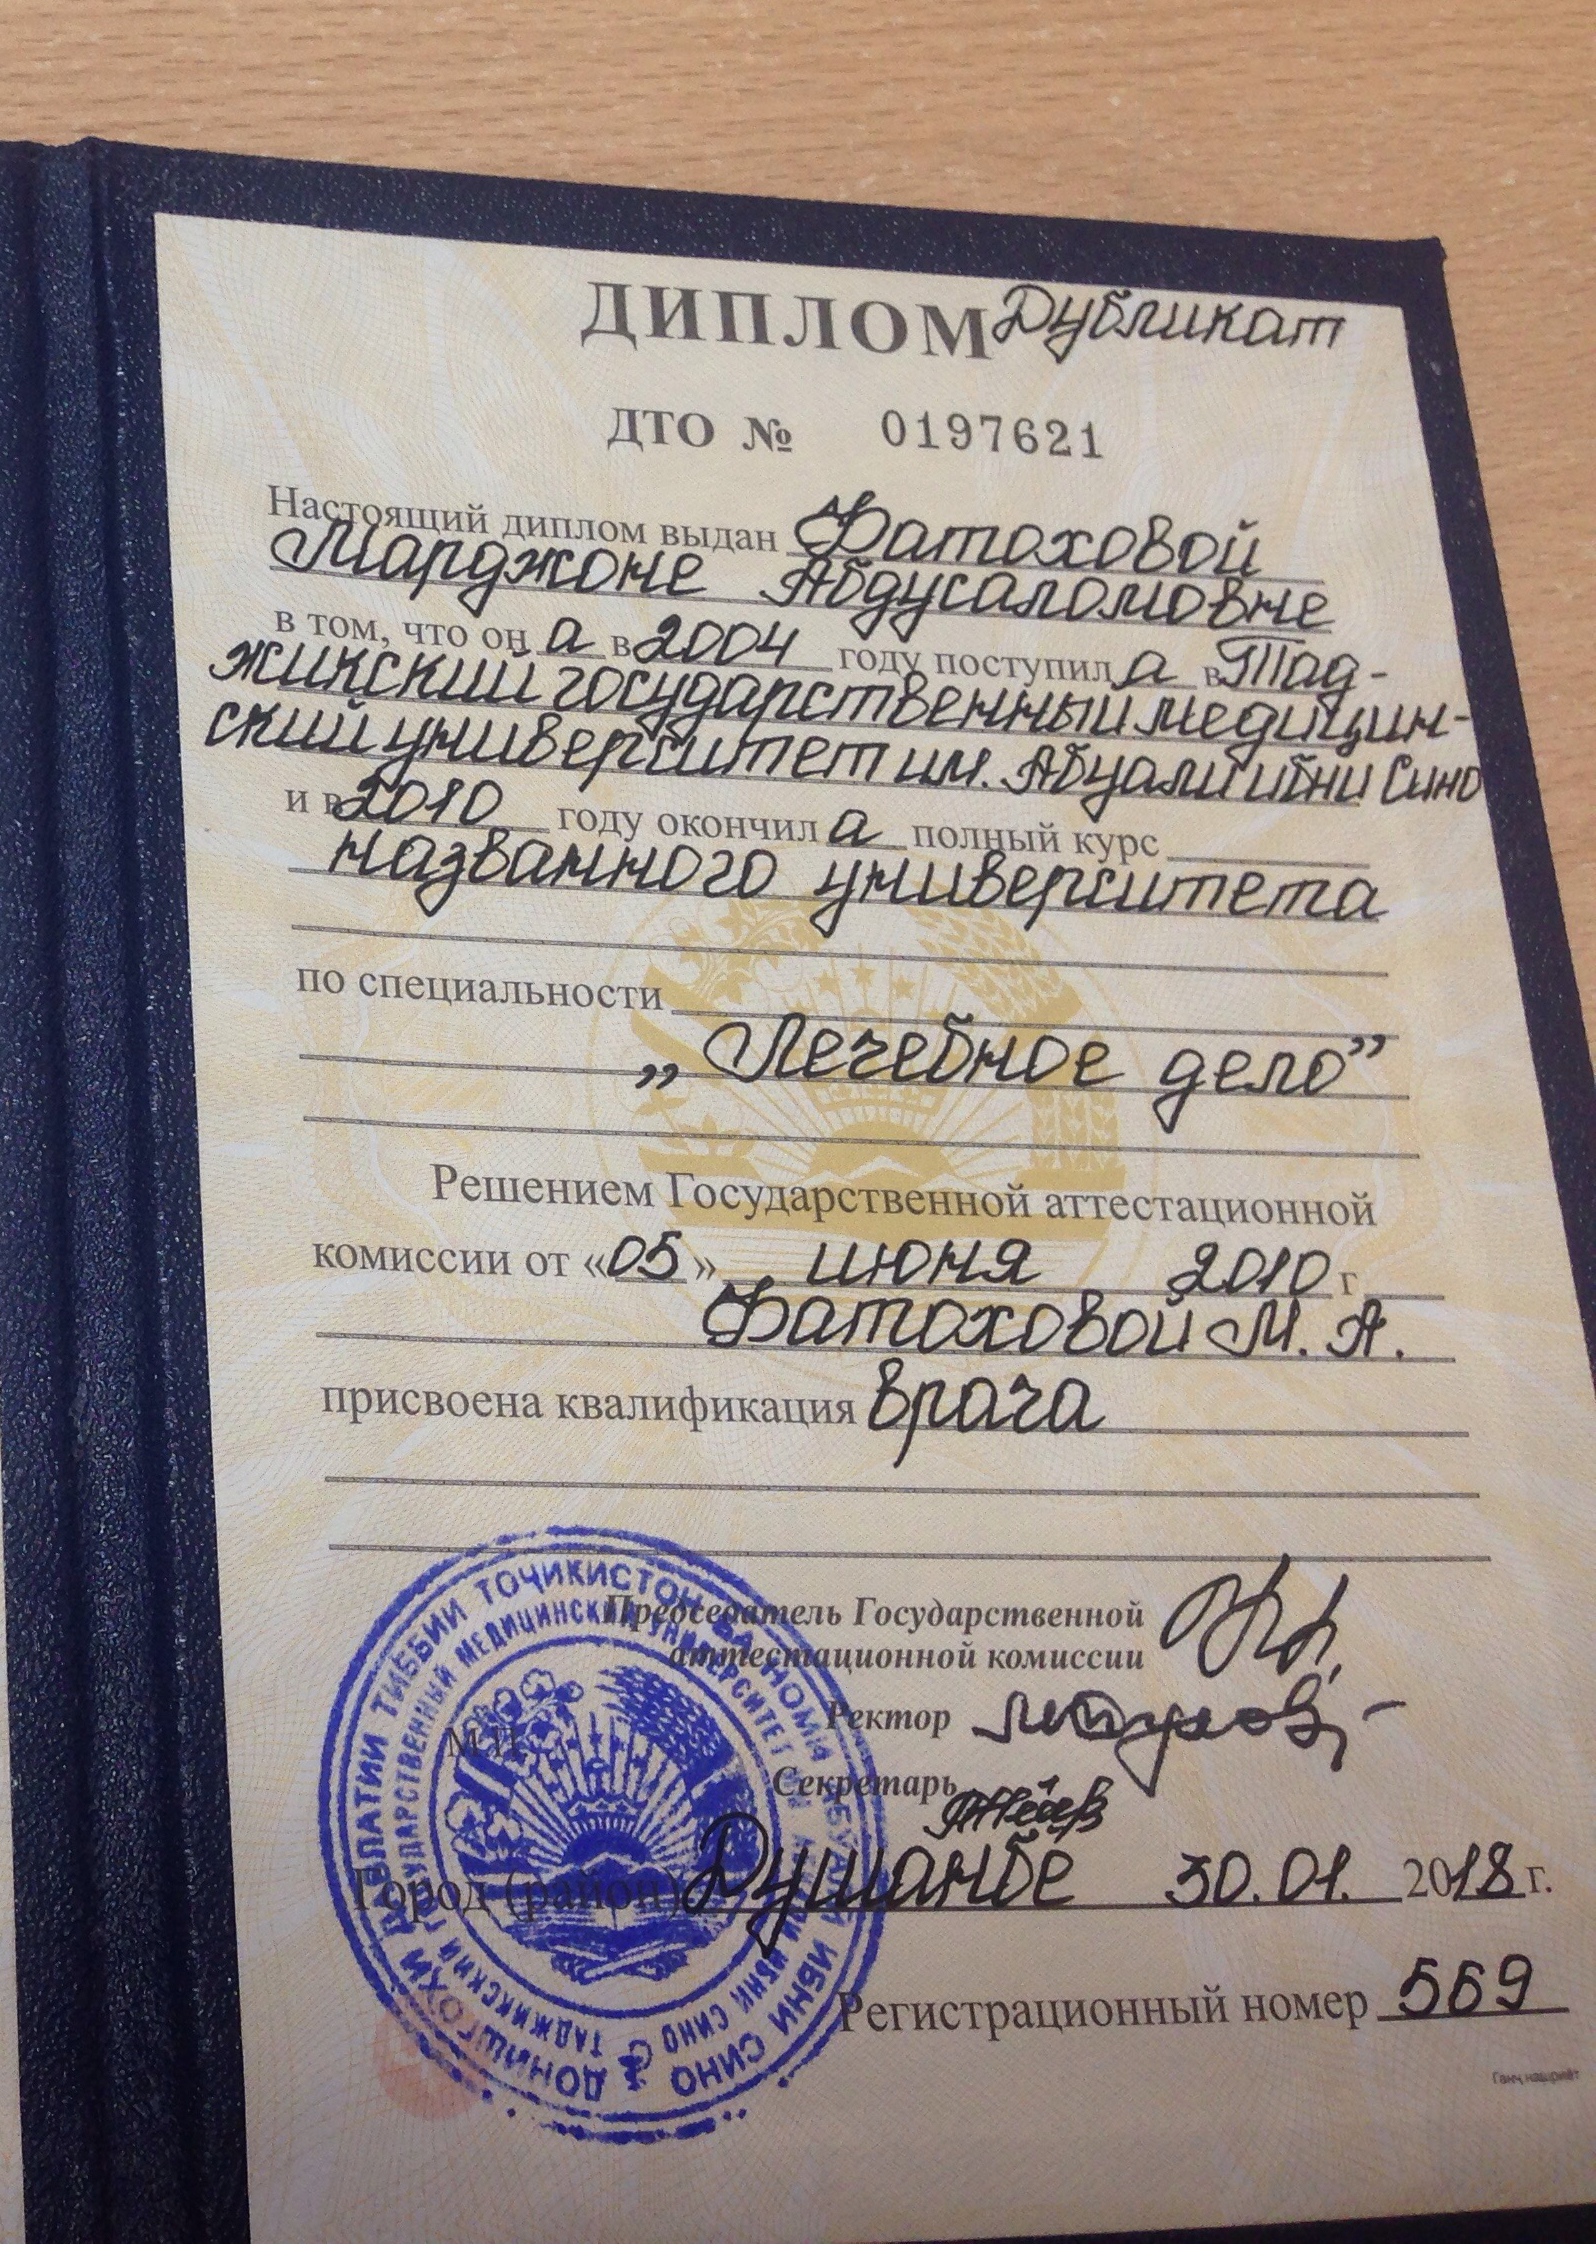 ДИПЛОМ Дубликат
ДТО № 0197621
Настоящий диплом выдан Фатоховой
Марджоне Абдусаломовне
в том, что он а в 2004 году поступил а в Тад-
жикский государственный медицин-
ский университет им. Абуали ибни Сино
и в 2010 году окончил а полный курс
названного университета
по специальности
„Лечебное дело”
Решением Государственной аттестационной
комиссии от «05» июня 2010 г
Фатоховой М. А.
присвоена квалификация врача
Председатель Государственной
аттестационной комиссии
Ректор
Секретарь
М.П.
Город (район) Душанбе 30.01. 2018 г.
Регистрационный номер 569
Ганҷ нашриёт
ДОНИШГОҲИ ДАВЛАТИИ ТИББИИ ТОҶИКИСТОН БА НОМИ АБУАЛӢ ИБНИ СИНО
ТАДЖИКСКИЙ ГОСУДАРСТВЕННЫЙ МЕДИЦИНСКИЙ УНИВЕРСИТЕТ ИБНИ СИНО